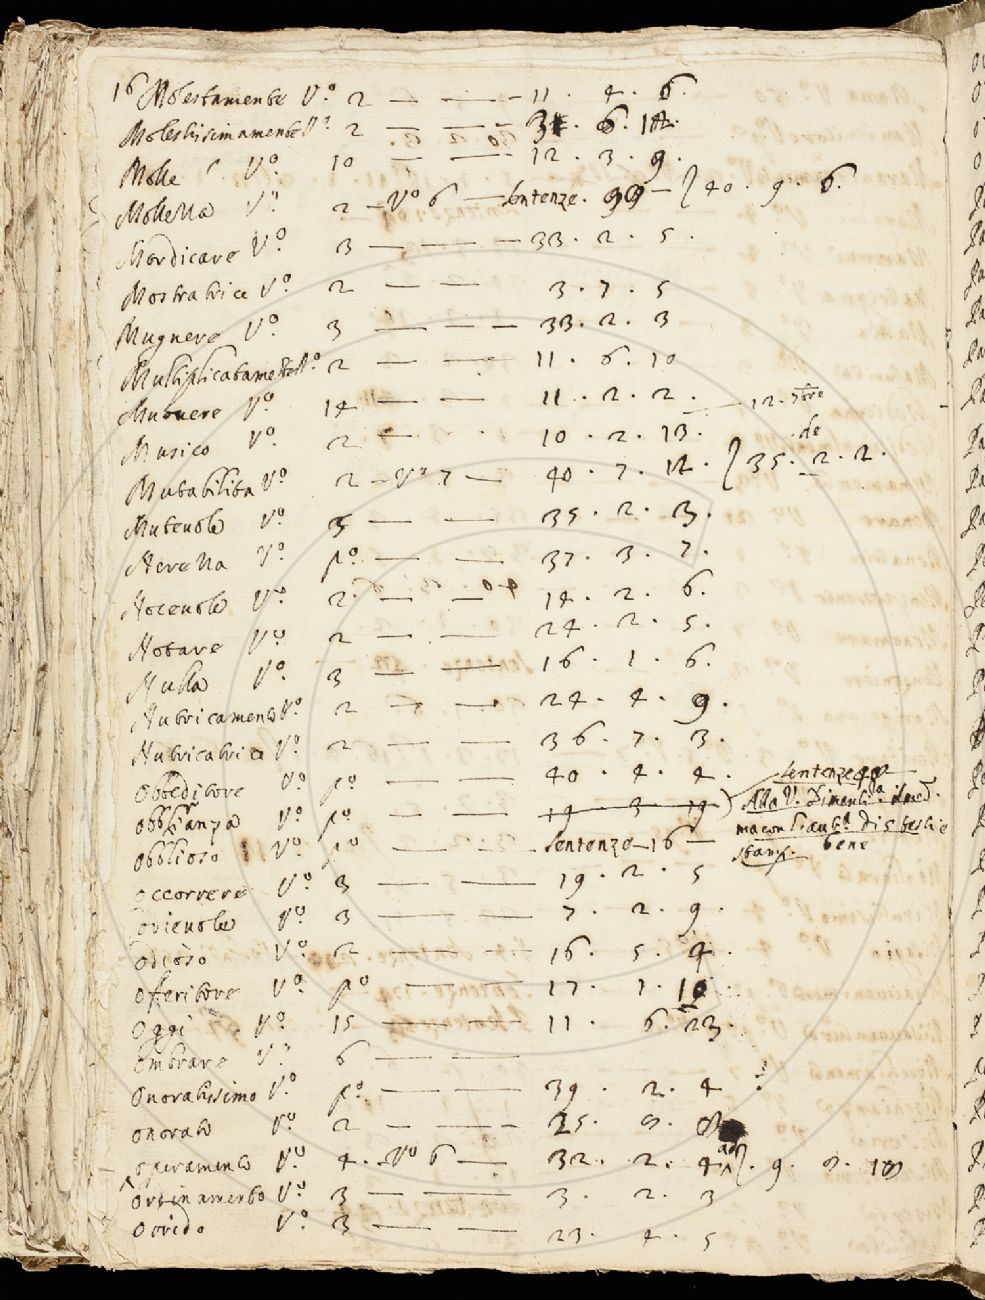 16 Molestamente V.º 2 — — 11. 4. 6.
Molestissimamente V.º 2 — — 6.
Molle V.º 10 — — 12. 3. 9.
Mollella V.º 2 — Vº 6 — Sentenze. 99 — } 40. 9. 6.
Mordicare V.º 3 — — — 33. 2. 5.
Mostratrice V.º 2 — — 3. 7. 5
Mugnere V.º 3 — — — 33. 2. 3
Multiplicatamente V.º 2 — — 11. 6. 10
Muovere V.º 14 — — 11. 2. 2. — 12.
Musico V.º 2 — — 10. 2. 13. de
Mutabilita V.º 2 — Vº 7 — 40. 7. 12. } 35. 2. 2.
Mutevole V.º 3 — — 35. 2. 3.
Nerella V.º pº. — — 37. 3. 7.
Nocevole V.º 2. — — 14. 2. 6.
Notare V.º 2 — — 24. 2. 5.
Nulla V.º 3 — — 16. 1. 6.
Nutricamento V.º 2 — — 24. 4. 9.
Nutricatrice V.º 2 — — 36. 7. 3.
Obbeditore V.º pº. — — 40. 4. 4. Sentenze 40
V.º pº. — — 14 3 19 ) Alla V.
Obblioso V.º pº — — Sentenze — 16 — bene
Occorrere V.º 3 — — 19. 2. 5
Odievole V.º 3 — — 7. 2. 9.
Odioso V.º 2 — — 16. 5. 4.
Offeritore V.º pº — — 17. 1. 10
Oggi V.º 15 — — 11. 6. 23.
Ombrare V.º 6 — —
Onoratissimo V.º pº. — — 39. 2. 4
Onorato V.º 2 — — — 25.
V.º 4. — Vº 6 — 32. 2. 4 . 9.
Ordinamento V.º 3 — — 3. 2. 3
V.º 3 — — 23. 4. 5